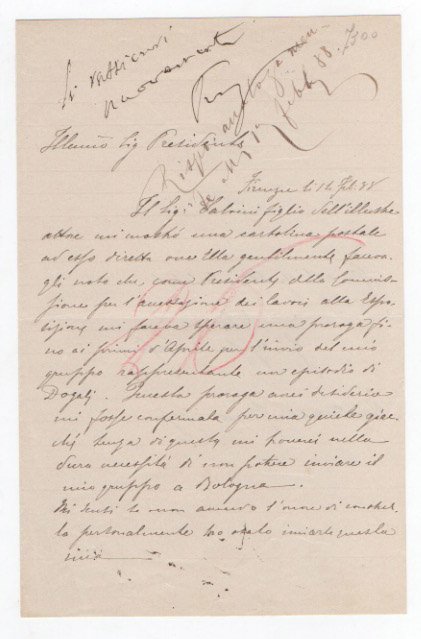 Si rassicuri
nuovamente
Risposto analogamen-
te 17 Febb. 88. 
Illmo Sig Presidente
Firenze li 14 Feb. 88
Il Sig: Salvini figlio dell'illustre
attore mi mostrò una cartolina postale
ad esso diretta ove Ella gentilmente faceva-
gli noto che, come Presidente della Commis-
sione per l'accettazione dei lavori alla Espo-
sizione mi faceva sperare una proroga fi-
no ai primi d'Aprile per l'invio del mio
gruppo rappresentante un episodio di
Dogali. Questa proroga anzi desidererei
mi fosse confermata per mia quiete giac-
ché senza di questa mi troverei nella
dura necessità di non potere inviare il
mio gruppo a Bologna.
Mi scusi se non avendo l'onore di conoscer-
la personalmente ho osato inviarle questa
mia